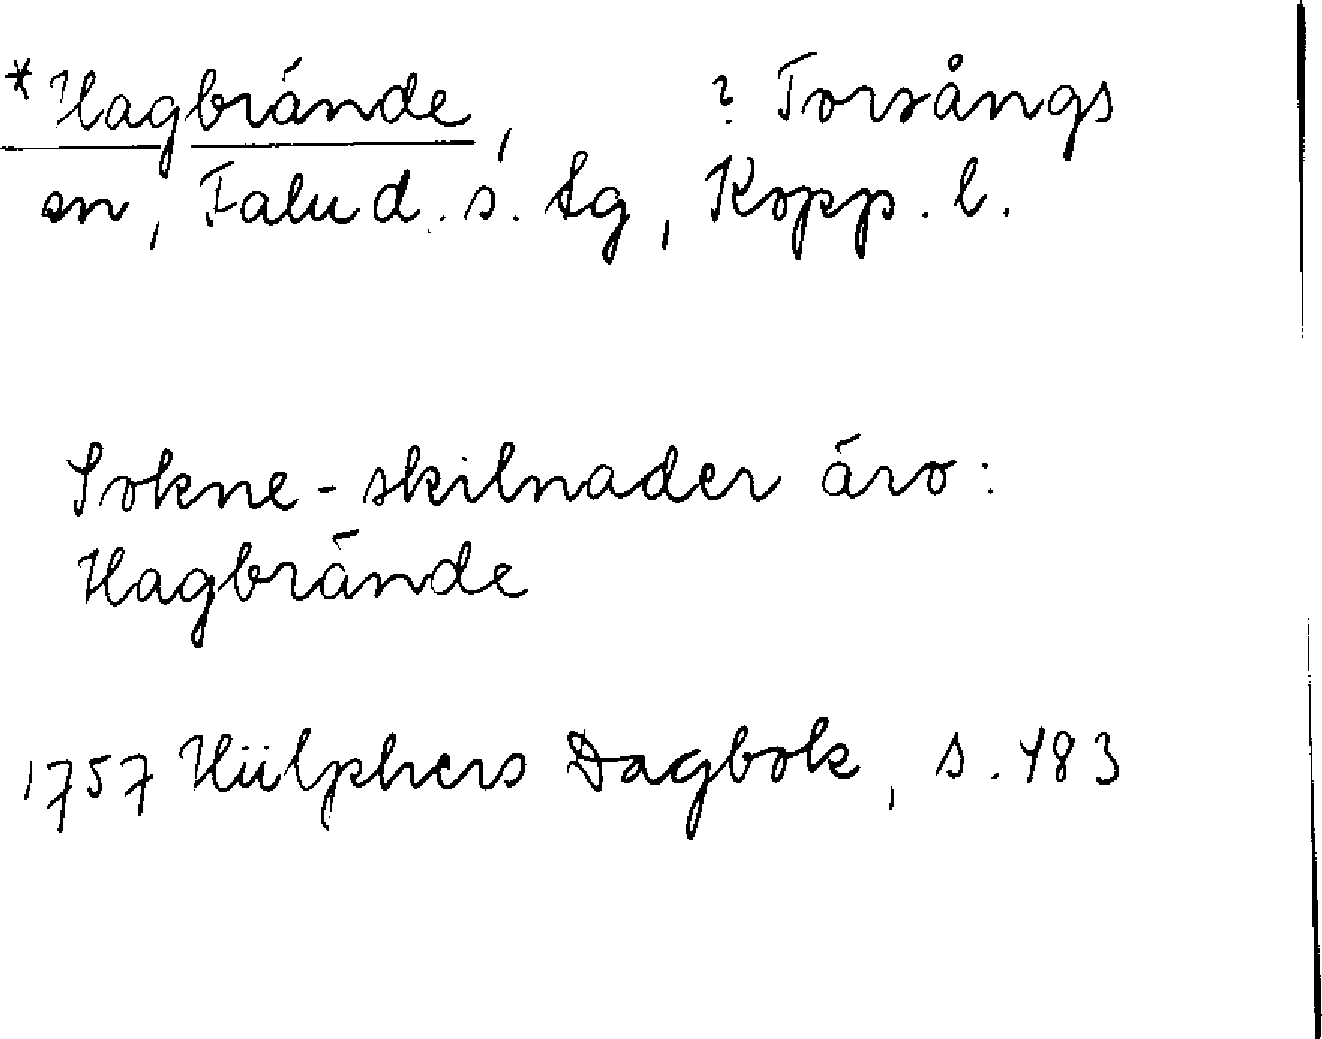 *Hagbrände, ? Torsångs
sn, Falu d. s. tg, Kopp. l.
Sokne-skilnader äro:
Hagbrände
1757 Hülphers Dagbok, s. 483